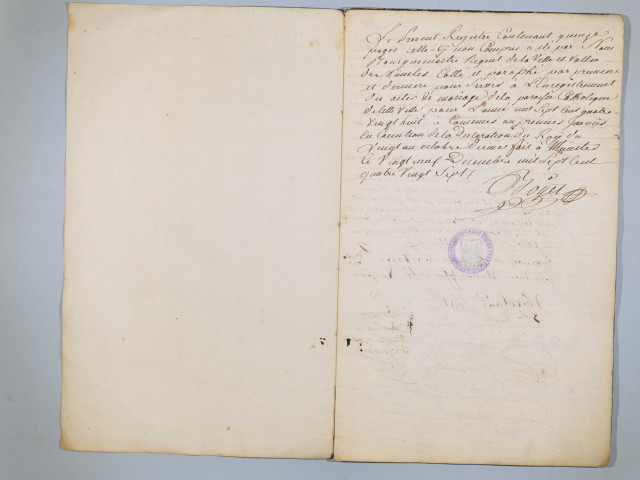 Le Present Registre Contenant quinze
pages celle-cy non Compris a été par Nous
Bourguemaistre Regent de la Ville et Vallée
de Munster Cotté et paraphé par premiere
et derniere pour servir à L'Enregistrement
des actes de mariage de la paroisse Catholique
de cette Ville pour L'année mil sept Cent quatre
vingt huit à Commencer au premier Janvier
En Execution de la Declaration du Roy du
Vingt un octobre dernier fait à Munster
Ce Vingt neuf Decembre mil Sept Cent
quatre Vingt Sept /.